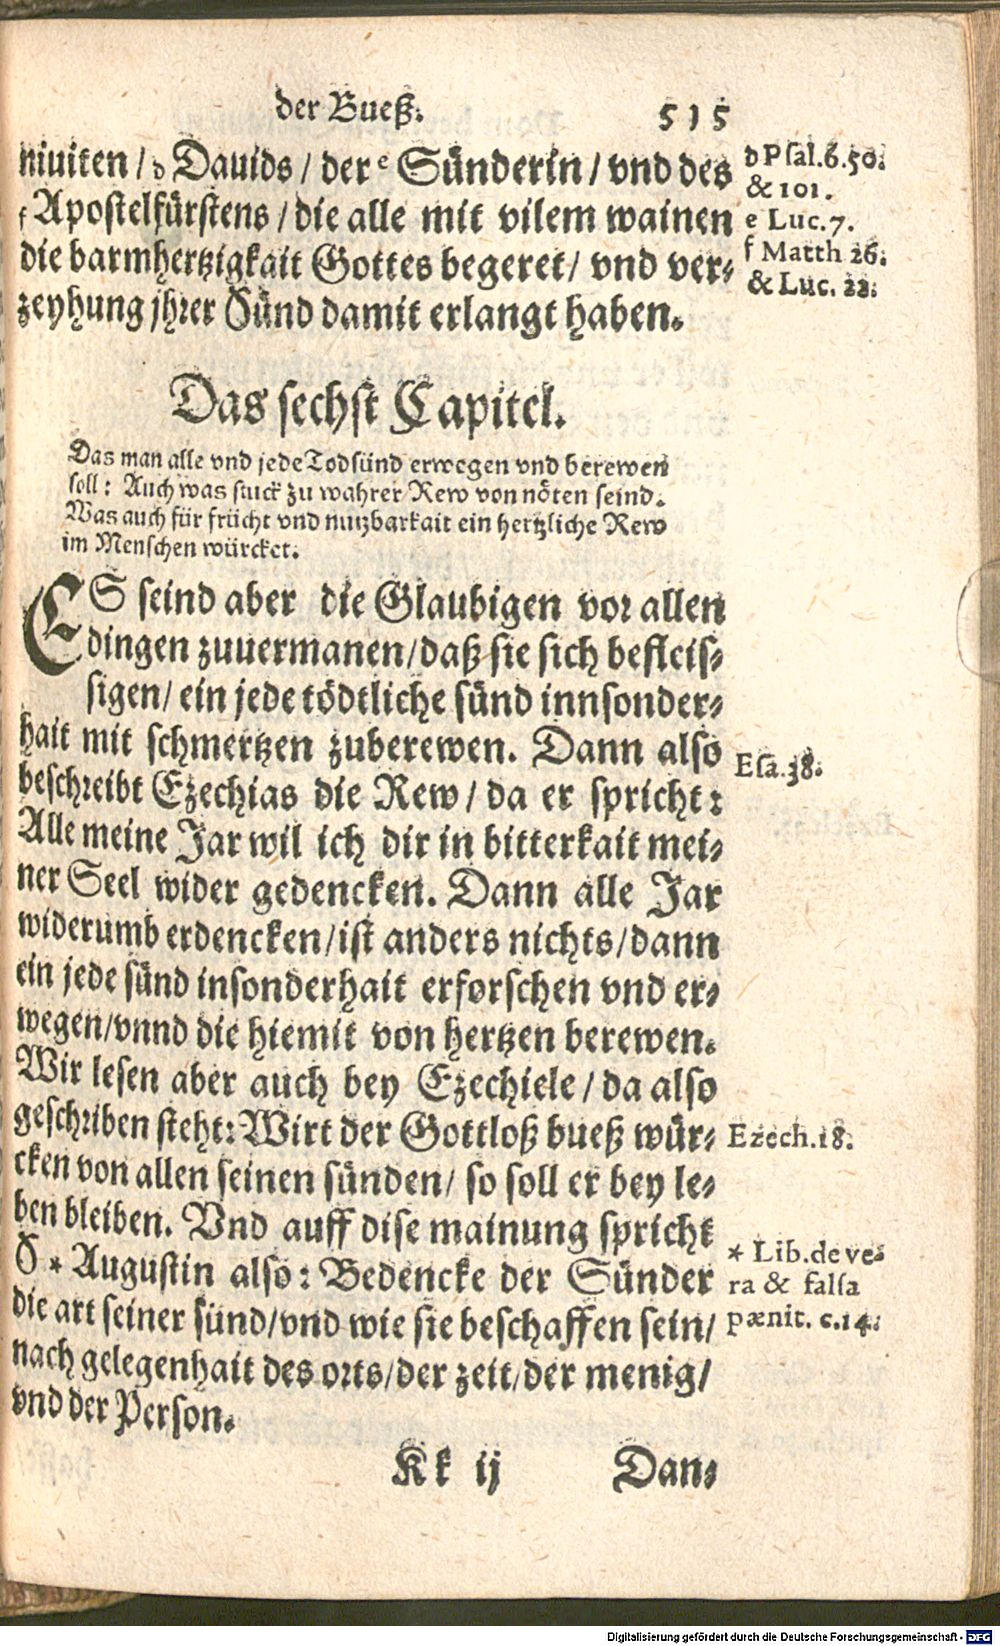 der Bueß. 515
niuiten / d Dauids / der e Sünderin / vnd des
f Apostelfürstens / die alle mit vilem wainen
die barmhertzigkait Gottes begeret / vnd ver-
zeyhung jhrer Sünd damit erlangt haben.
d Psal. 6. 50.
& 101.
e Luc. 7.
f Matth 26.
& Luc. 22.
Das sechst Capitel.
Das man alle vnd jede Todsünd erwegen vnd berewen
soll: Auch was stuck zu wahrer Rew von nöten seind.
Was auch für frücht vnd nutzbarkait ein hertzliche Rew
im Menschen würcket.
ES seind aber die Glaubigen vor allen
dingen zuuermanen / daß sie sich befleis-
sigen / ein jede tödtliche sünd innsonder-
hait mit schmertzen zuberewen. Dann also
beschreibt Ezechias die Rew / da er spricht:
Alle meine Jar wil ich dir in bitterkait mei-
ner Seel wider gedencken. Dann alle Jar
widerumb erdencken / ist anders nichts / dann
ein jede sünd insonderhait erforschen vnd er-
wegen / vnnd die hiemit von hertzen berewen.
Wir lesen aber auch bey Ezechiele / da also
geschriben steht: Wirt der Gottloß bueß wür-
cken von allen seinen sünden / so soll er bey le-
ben bleiben. Vnd auff dise mainung spricht
S * Augustin also: Bedencke der Sünder
die art seiner sünd / vnd wie sie beschaffen sein /
nach gelegenhait des orts / der zeit / der menig /
vnd der Person.
Esa. 38.
Ezech. 18.
* Lib. de ve-
ra & falsa
pænit. c. 14.
Kk ij Dan-
Digitalisierung gefördert durch die Deutsche Forschungsgemeinschaft - DFG